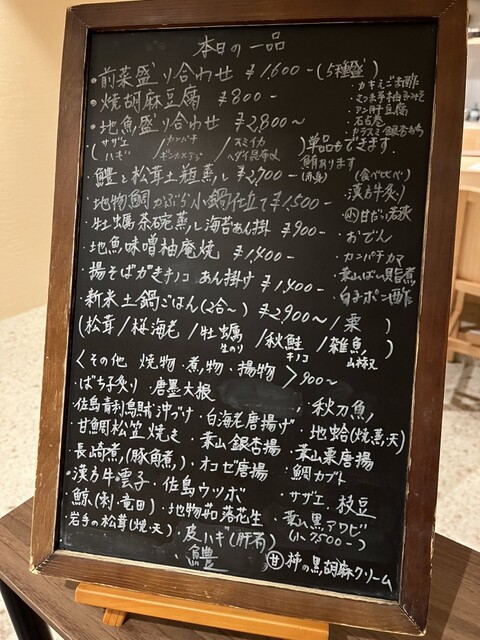 本日の一品
・前菜盛り合わせ ¥1,600-(5種盛)
・カキえごお酢
・焼胡麻豆腐 ¥800-
アン肝豆腐
・地魚盛り合わせ ¥2,800~
カラスミ銀杏
(サザエ/カンパチ/スミイカ
ハギ/ギンガメアジ/ヘダイ昆布〆)単品もできます。
鮪あります
・鱧と松茸土瓶蒸し ¥2,700-
(赤身) (食べ比べ)
漢方牛炙り
・地物鯛かぶら小鍋仕立て¥1,500-
・牡蠣茶碗蒸し海苔あん掛 ¥900-
・おでん
・地魚味噌柚庵焼 ¥1,400-
・カンパチカマ
・葉山ばい貝旨煮
・揚そばがきキノコあん掛け¥1,400-
・白子ポン酢
・新米土鍋ごはん(2合~)¥2,900~/栗)
(松茸/桜海老/牡蠣/秋鮭/雑魚)
生のり キノコ 山椒
<その他 焼物・煮物・揚物>900~
・ばち子炙り ・唐墨大根
・秋刀魚
・佐島青利烏賊沖づけ ・白海老唐揚げ ・地蛤(焼・蒸・天)
・甘鯛松笠焼き ・葉山銀杏揚 ・葉山栗唐揚
・長崎煮(豚角煮) ・オコゼ唐揚 ・鯛カブト
・漢方牛雲子 ・佐島ウツボ ・サザエ ・枝豆
・鯨(刺・竜田) ・地物茹落花生 ・葉山黒アワビ
・岩手の松茸(焼・天) ・皮ハギ(肝有)
・鱧
㊙柿の黒胡麻クリーム